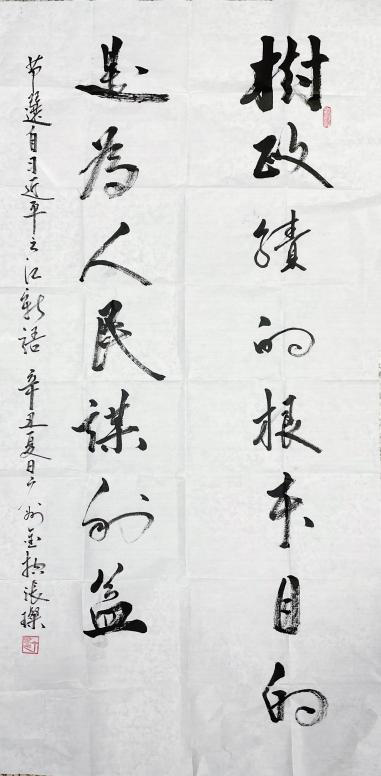 樹政績的根本目的
是為人民謀利益
节選自习近平之江新語 辛丑夏日广州金柏張揲